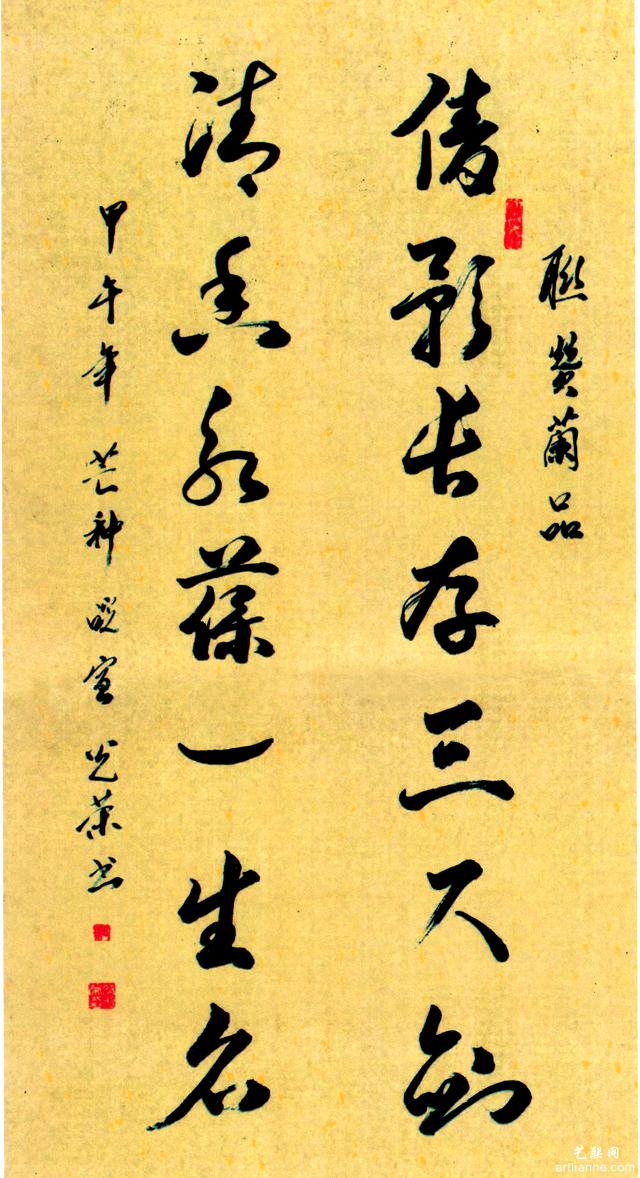 聯贊蘭品
倩影长存三尺剑
清香永葆一生名
甲午年 芒种 晓宣 光荣书
艺联网
artlianne.com